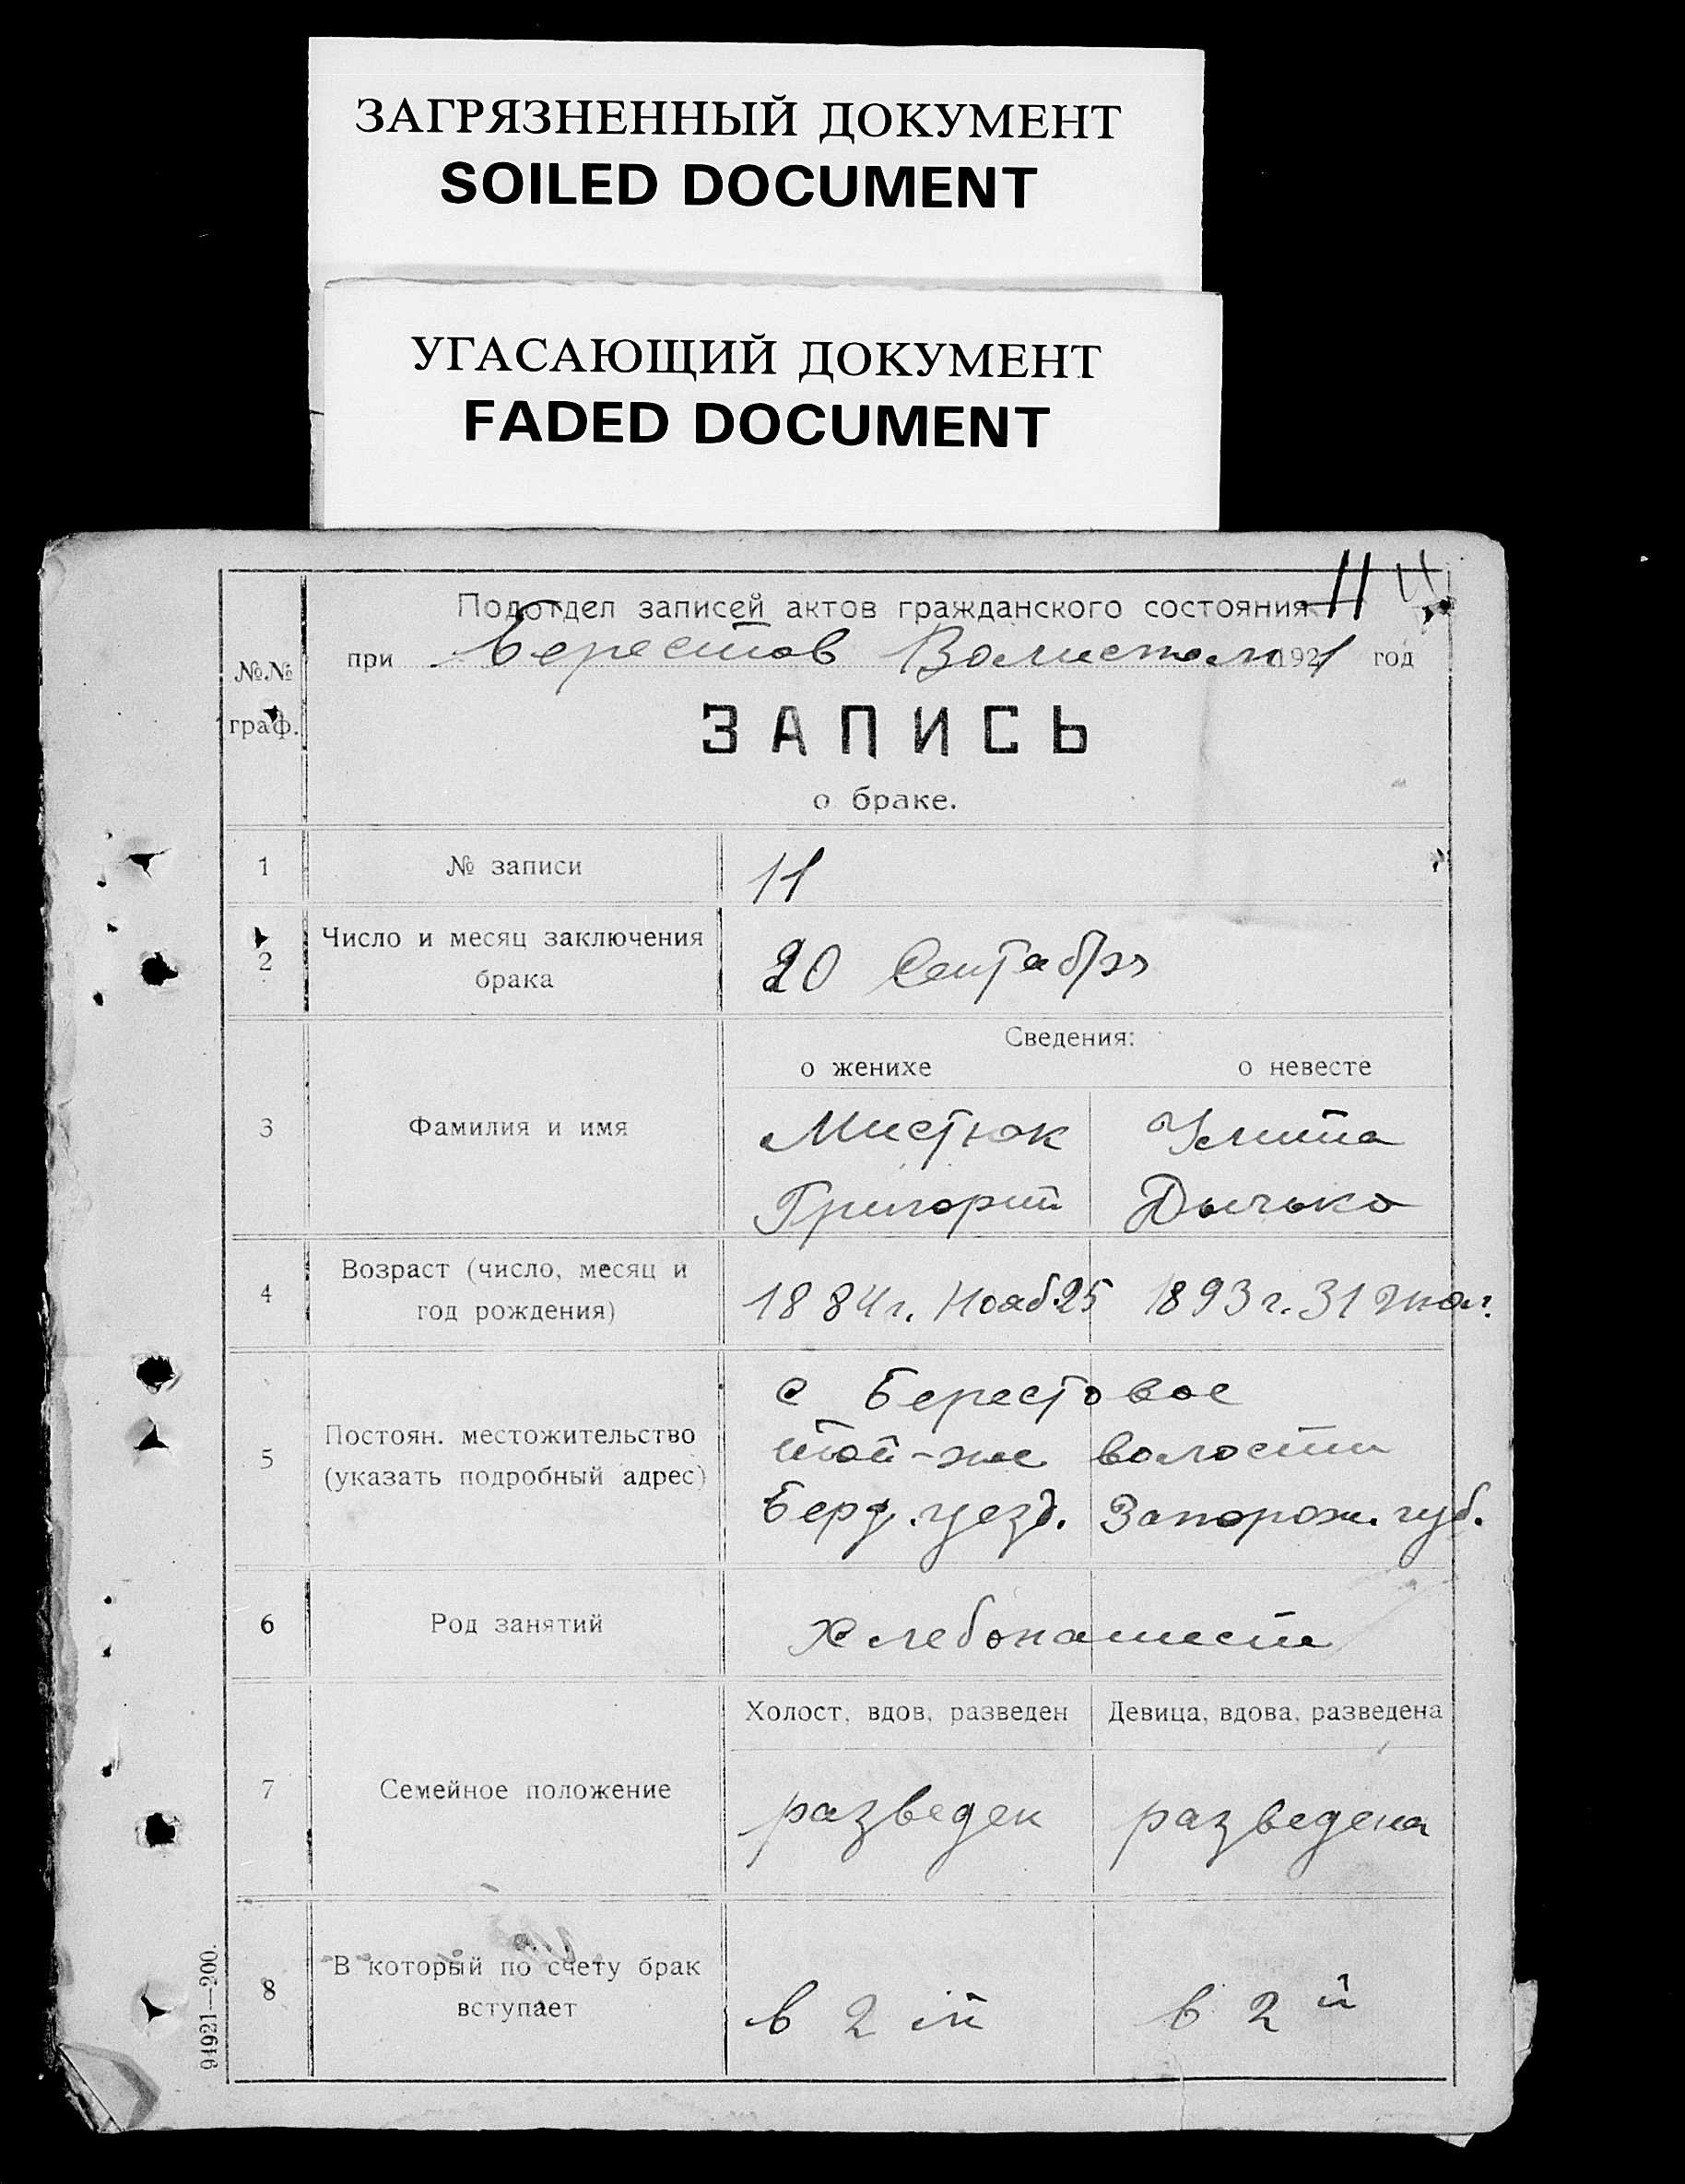 ЗАГРЯЗНЕННЫЙ ДОКУМЕНТ
SOILED DOCUMENT
УГАСАЮЩИЙ ДОКУМЕНТ
FADED DOCUMENT
11
Подотдел записей актов гражданского состояния
№№ граф.
при Берестов 1921 год
ЗАПИСЬ
о браке.
1 № записи 11
2 Число и месяц заключения брака
20 Сентабря
Сведения:
о женихе о невесте
3 Фамилия и имя
Мистюк Улита
Григорий Дычько
4 Возраст (число, месяц и год рождения)
1884 г. Нояб 25 1893 г. 31
5 Постоян. местожительство (указать подробный адрес)
с Берестовое
той-же волости
Берд. уезд. Запорож. губ.
6 Род занятий
7 Семейное положение
Холост, вдов, разведен Девица, вдова, разведена
разведен разведена
8 В который по счету брак вступает
в 2 й в 2 й
94921—200.